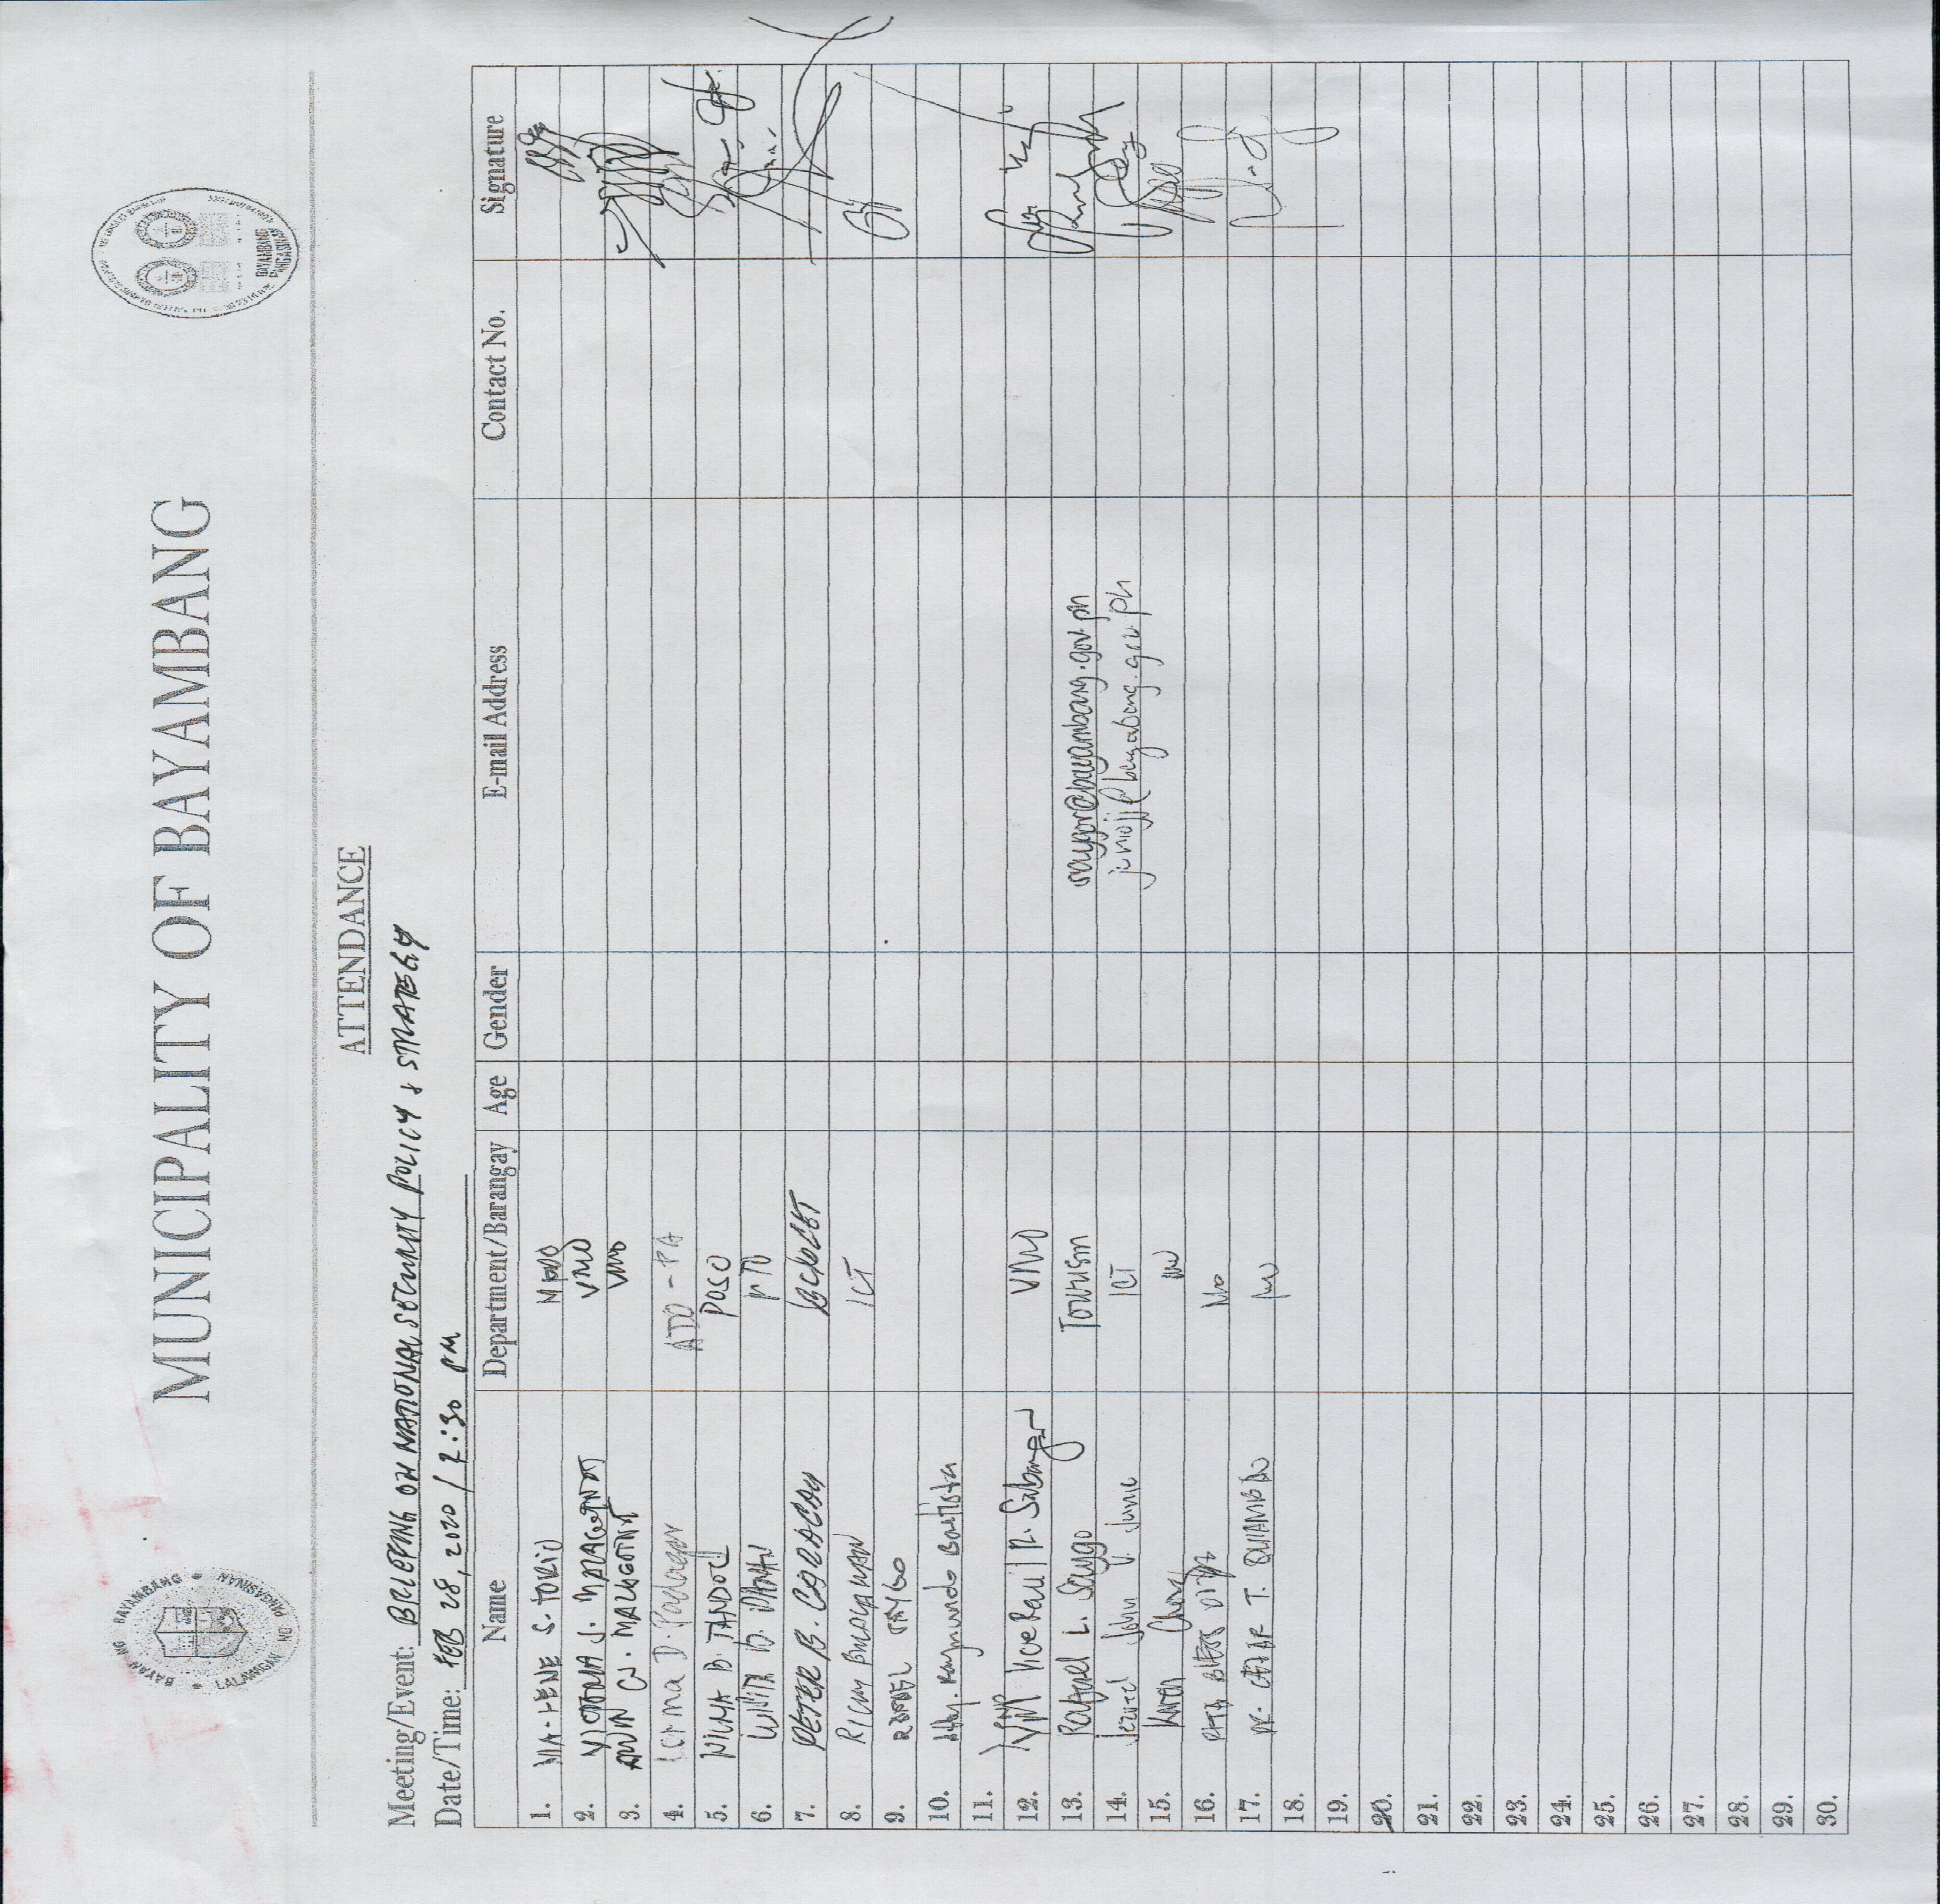 BAYAN NG BAYAMBANG
LALAWIGAN NG PANGASINAN
MUNICIPALITY OF BAYAMBANG
BAYAMBANG
PANGASINAN
ATTENDANCE
Meeting/Event: BRIEFING ON NATIONAL SECURITY POLICY & STRATEGY
Date/Time: FEB 28, 2020 / 2:30 PM
Name Department/Barangay Age Gender E-mail Address Contact No. Signature
1. MA-LENE S. TORIO MPDO
2. VICTORIA J. VMO
3. VMO
4. Lerma D. Padagas ADO-PA
5. WILMA B. TANDOC POSO
6. LUISITA B. DANAN MTO
7. PETER B. CARAGAN BUDGET
8. RICKY BULALAKAW ICT
9. SAYGO
10. Atty. Raymundo Bautista
11.
12. Vice Raul R. Sabangan VMO
13. Rafael L. Saygo Tourism saygor@bayambang.gov.ph
14. John V. Junio ICT juniojj@bayabang.gov.ph
15. Karen
16. RITA BLESS MO
17. DR. CEZAR T. QUIAMBAO
18.
19.
20.
21.
22.
23.
24.
25.
26.
27.
28.
29.
30.